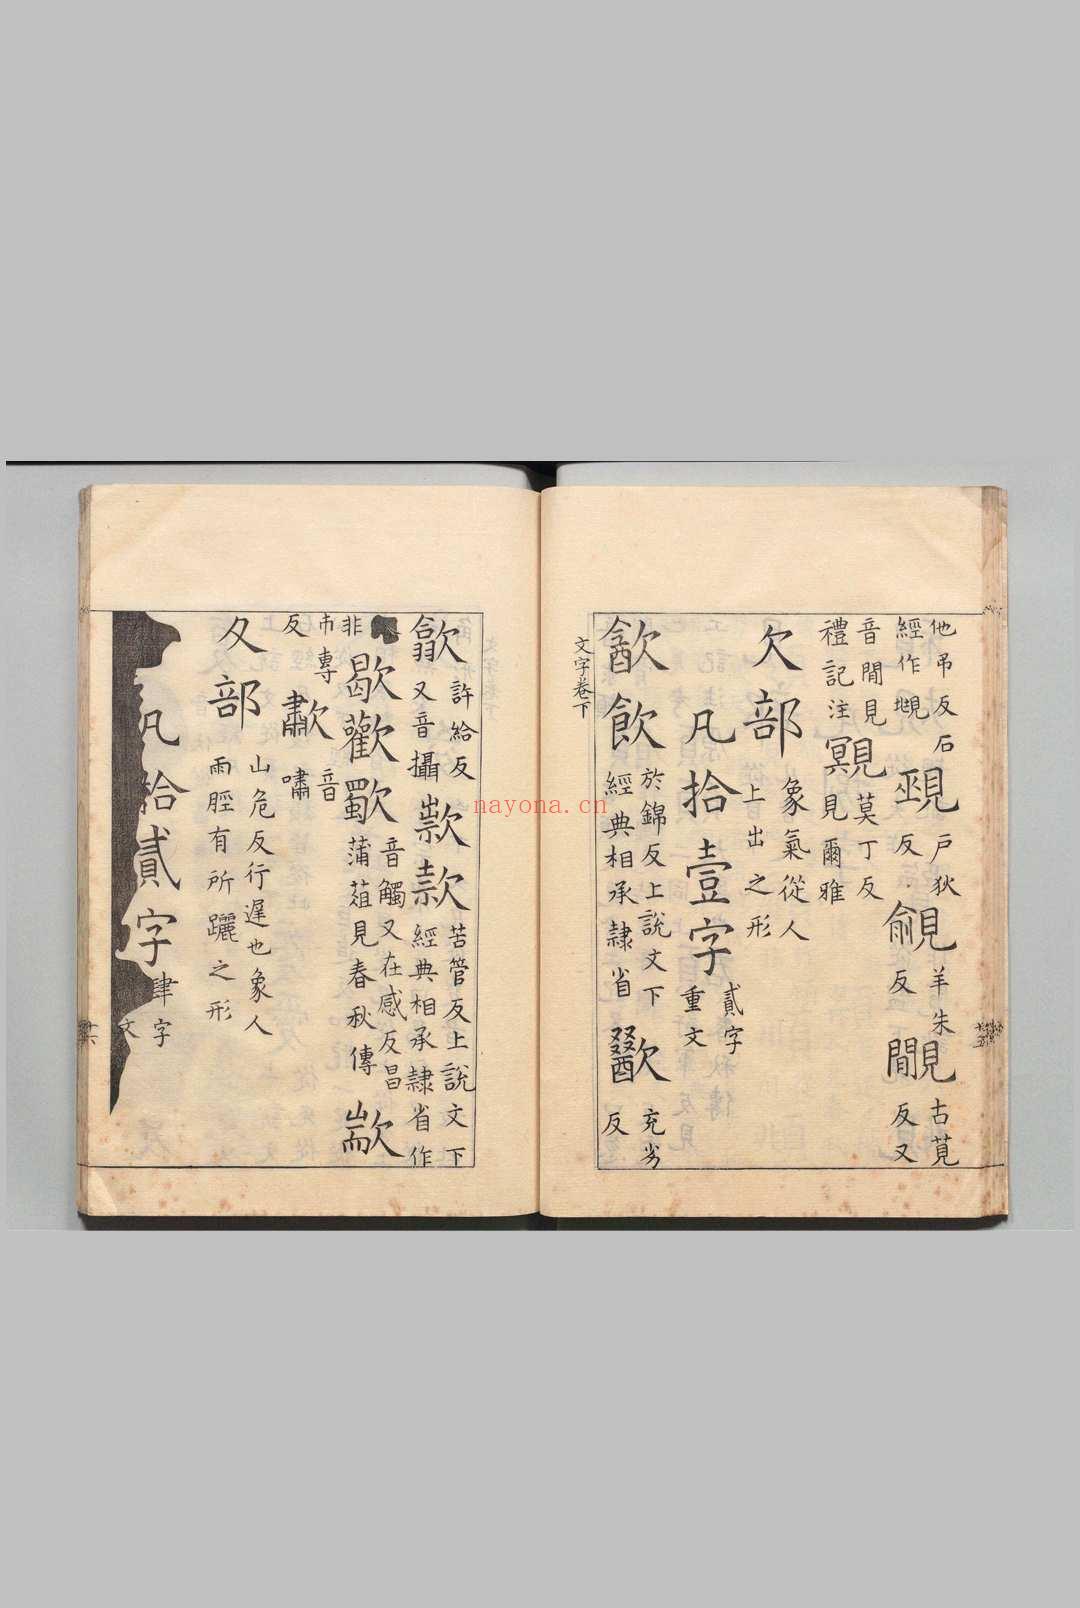 他弔反石經作覜覡戶狄反覦羊朱反覸古莧反又
音間見禮記注覭莫丁反見爾雅
欠部象氣從人上出之形
凡拾壹字貳字重文
㱃飲於錦反上說文下經典相承隸省歠充劣反
文字卷下
歙許給反又音攝𣣁款苦管反上說文下經典相承隸省作
非歇歡歜音觸又在感反昌蒲葅見春秋傳歂
市專反歗音嘯
夊部山危反行遲也象人兩脛有所躧之形
凡拾貳字肆字文
nayona.cn